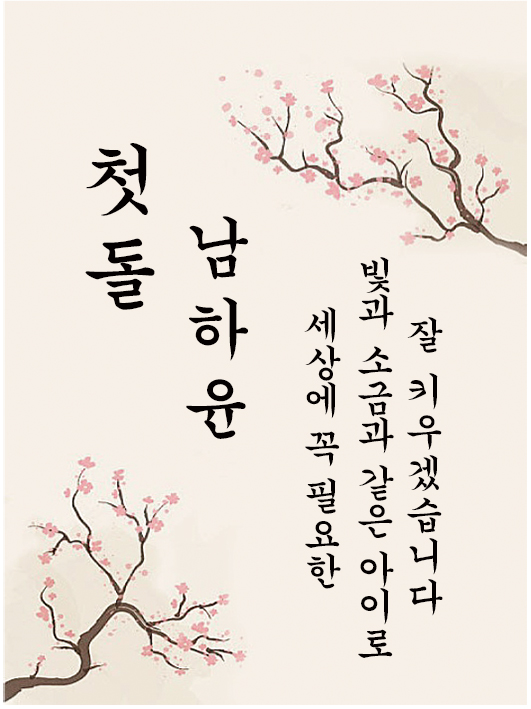 첫돌
남하윤
세상에 꼭 필요한
빛과 소금과 같은 아이로
잘 키우겠습니다